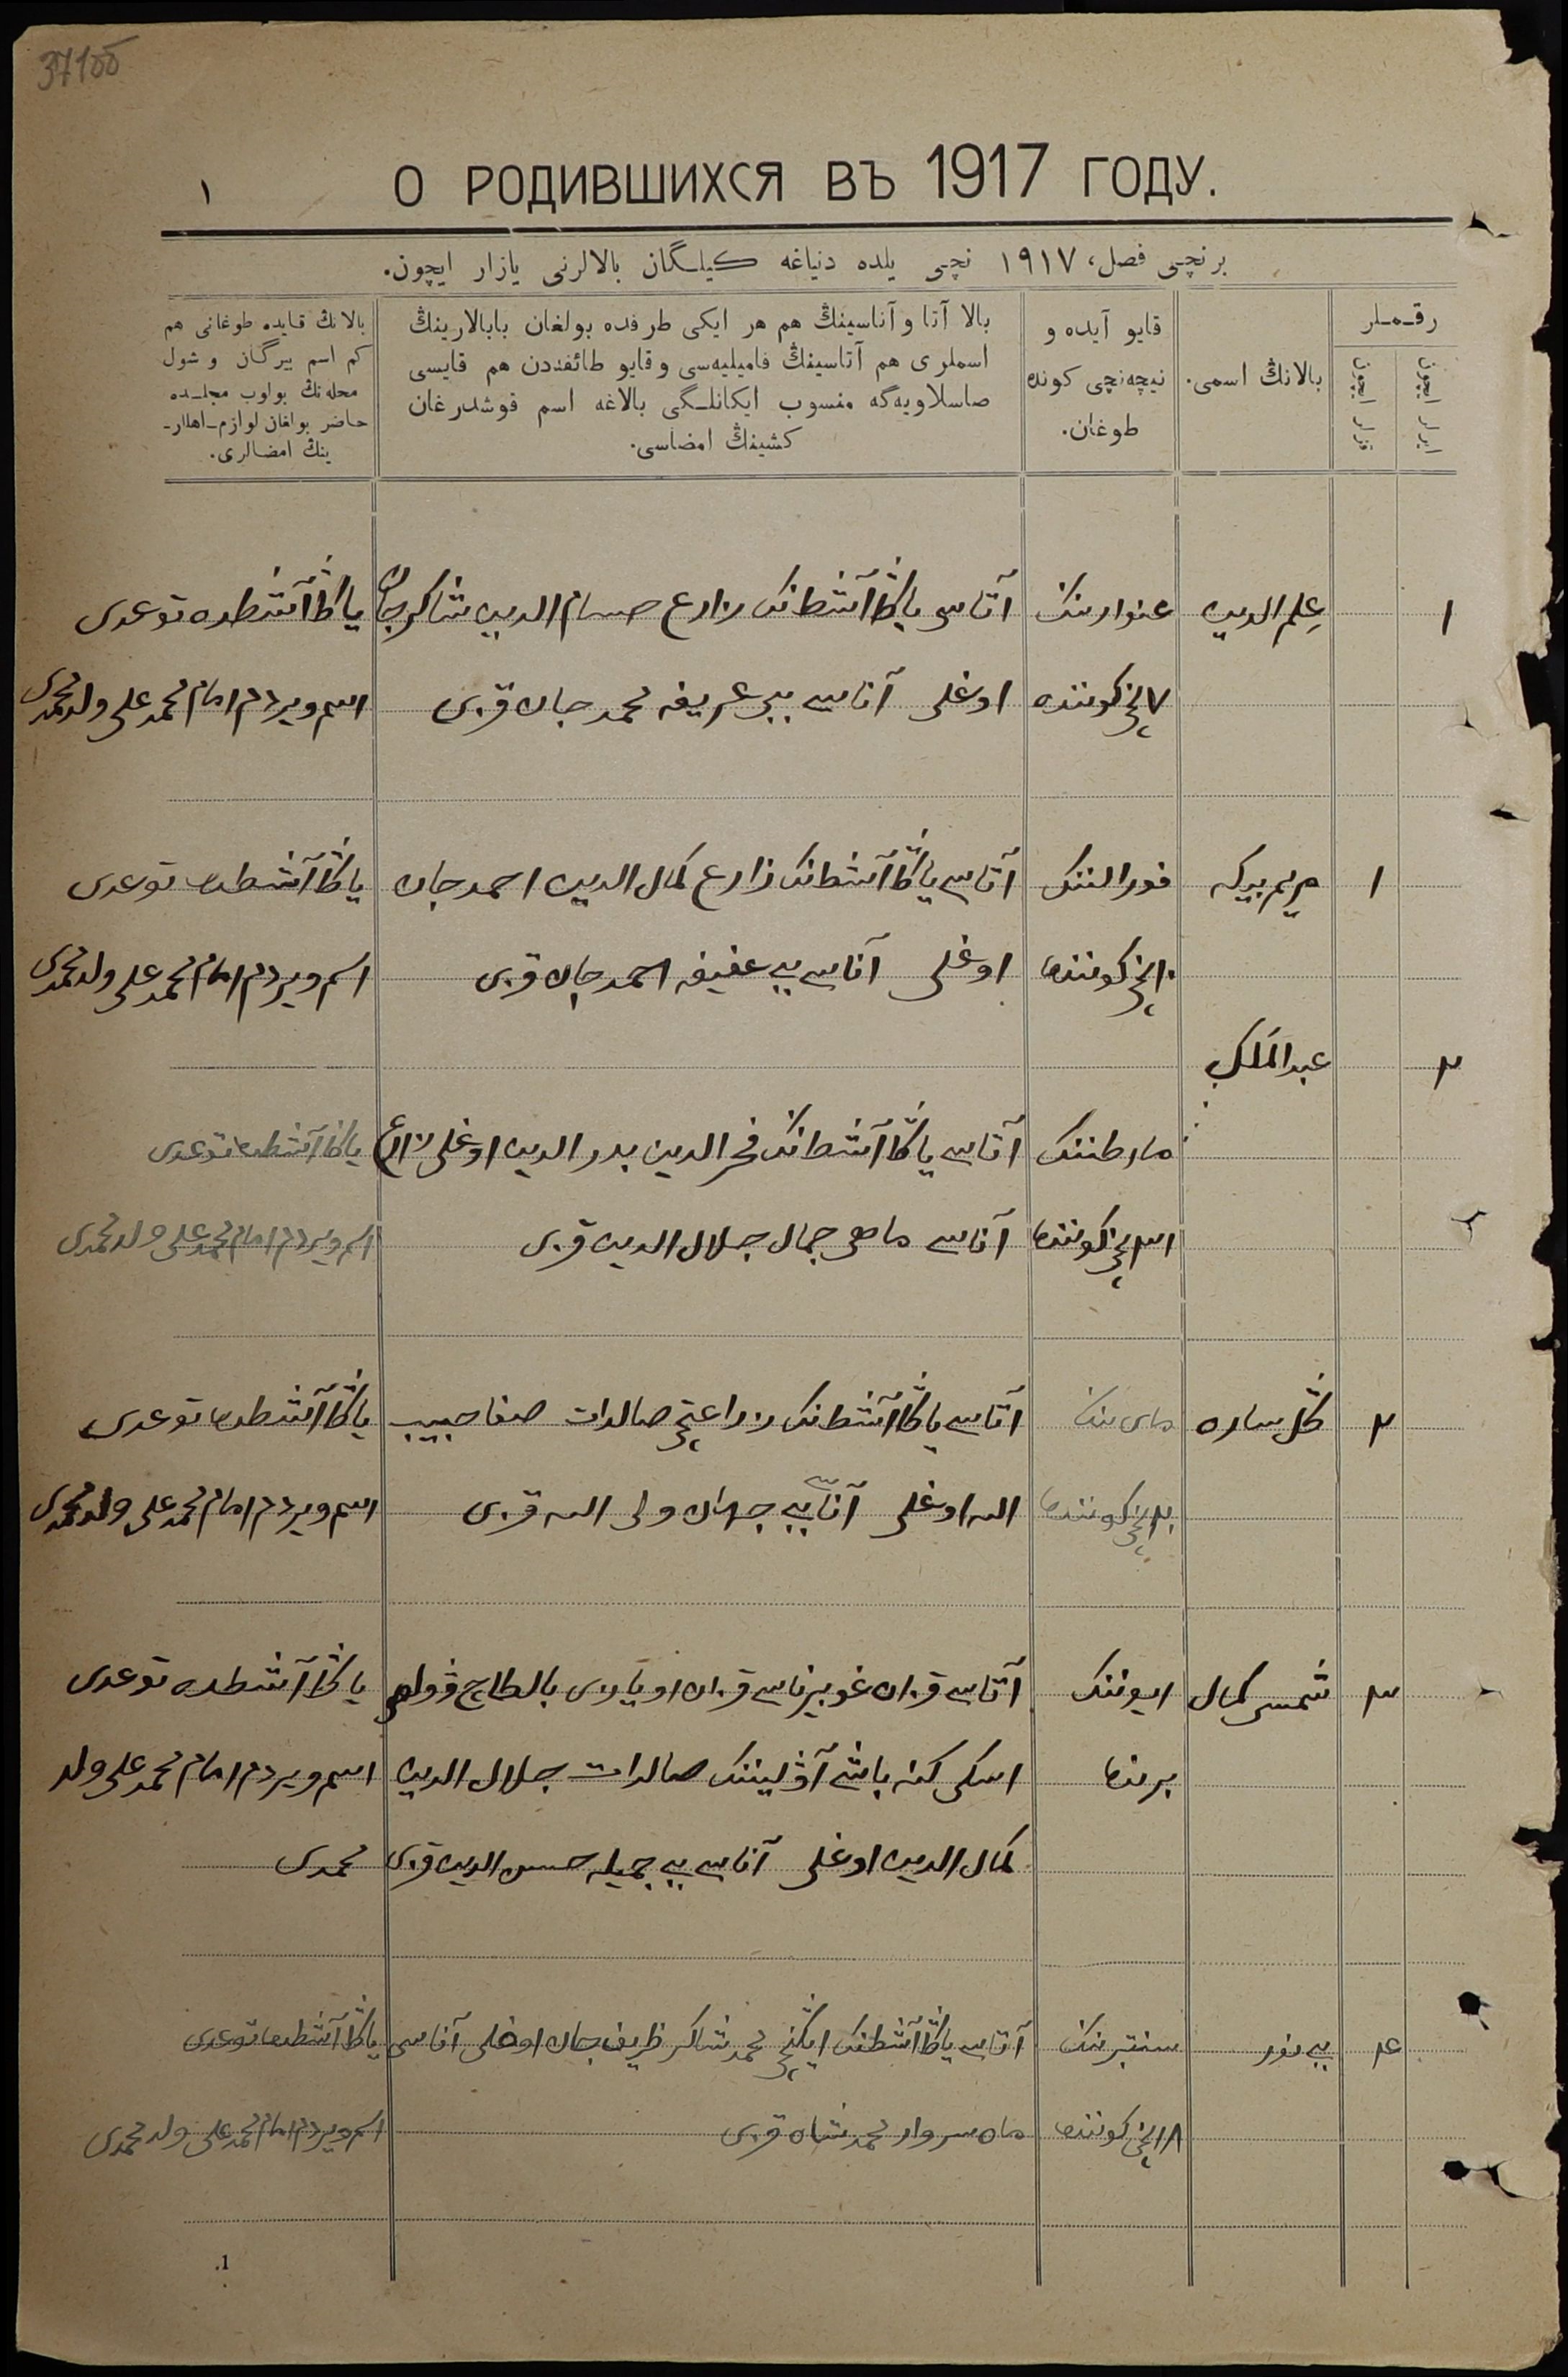 37100
١
О РОДИВШИХСЯ ВЪ 1917 ГОДУ.
برنچی فصل، ١٩١٧ نچی یلده دنیاغه کیلگان بالالرنی یازار ایچون.
رقملر
ایرلر ایچون
قزلر ایچون
بالانڭ اسمی.
قایو آیده و
نیچه‌نچی کونده
طوغان.
بالا آتا و آناسینڭ هم هر ایکی طرفده بولغان بابالارینڭ
اسملری هم آتاسینڭ فامیلیه‌سی و قایو طائفه‌دن هم قایسی
صاسلاویه‌گه منسوب ایکانلگی بالاغه اسم قوشدرغان
کشینڭ امضاسی.
بالانڭ قایده طوغانی هم
کم اسم بیرگان و شول
محله‌نڭ بولوب مجلسده
حاضر بولغان لوازم اهللر-
ینڭ امضالری.
١
علم الدین
غنوارننک
٧نچی کوننده
آتاسی یاڭا آشطنک زارع حسام الدین شاکرجان
اوغلی آناسی بی بی عریفه محمد جان قزی
یاڭا آشطده توغدی
اسم ویردم امام محمد علی ولد محمدی
١
مریم بیکه
فورالننک
١٠نچی کوننده
آتاسی یاڭا آشطنک زارع کمال الدین احمد جان
اوغلی آناسی بی بی عفیفه احمد جان قزی
یاڭا آشطده توغدی
اسم ویردم امام محمد علی ولد محمدی
٢
عبد الملک
مارطننک
٣١نچی کوننده
آتاسی یاڭا آشطنک فخر الدین بدر الدین اوغلی زارع
آناسی ماهی جمال جلال الدین قزی
یاڭا آشطده توغدی
اسم ویردم امام محمد علی ولد محمدی
٢
گل ساره
مای ننک
نچی کوننده
آتاسی یاڭا آشطنک زراعتچی صالدات صفا حبیب
الله اوغلی آناسی بی بی جهان ولی الله قزی
یاڭا آشطده توغدی
اسم ویردم امام محمد علی ولد محمدی
٣
شمس کمال
ایوننک
برنده
آتاسی قزان غوبیرناسی قزان اویازی بالطاچ فولوصی
اسکی کنه باشی آولیننک صالدات جلال الدین
کمال الدین اوغلی آناسی بی بی جمیله حسن الدین قزی
یاڭا آشطده توغدی
اسم ویردم امام محمد علی ولد
محمدی
٤
بی بی نور
سنتبرننک
١٨نچی کوننده
آتاسی یاڭا آشطنک ایگنچی محمد شاکر ظریف جان اوغلی آناسی
ماه سروار محمد شاه قزی
یاڭا آشطده توغدی
اسم ویردم امام محمد علی ولد محمدی
1.